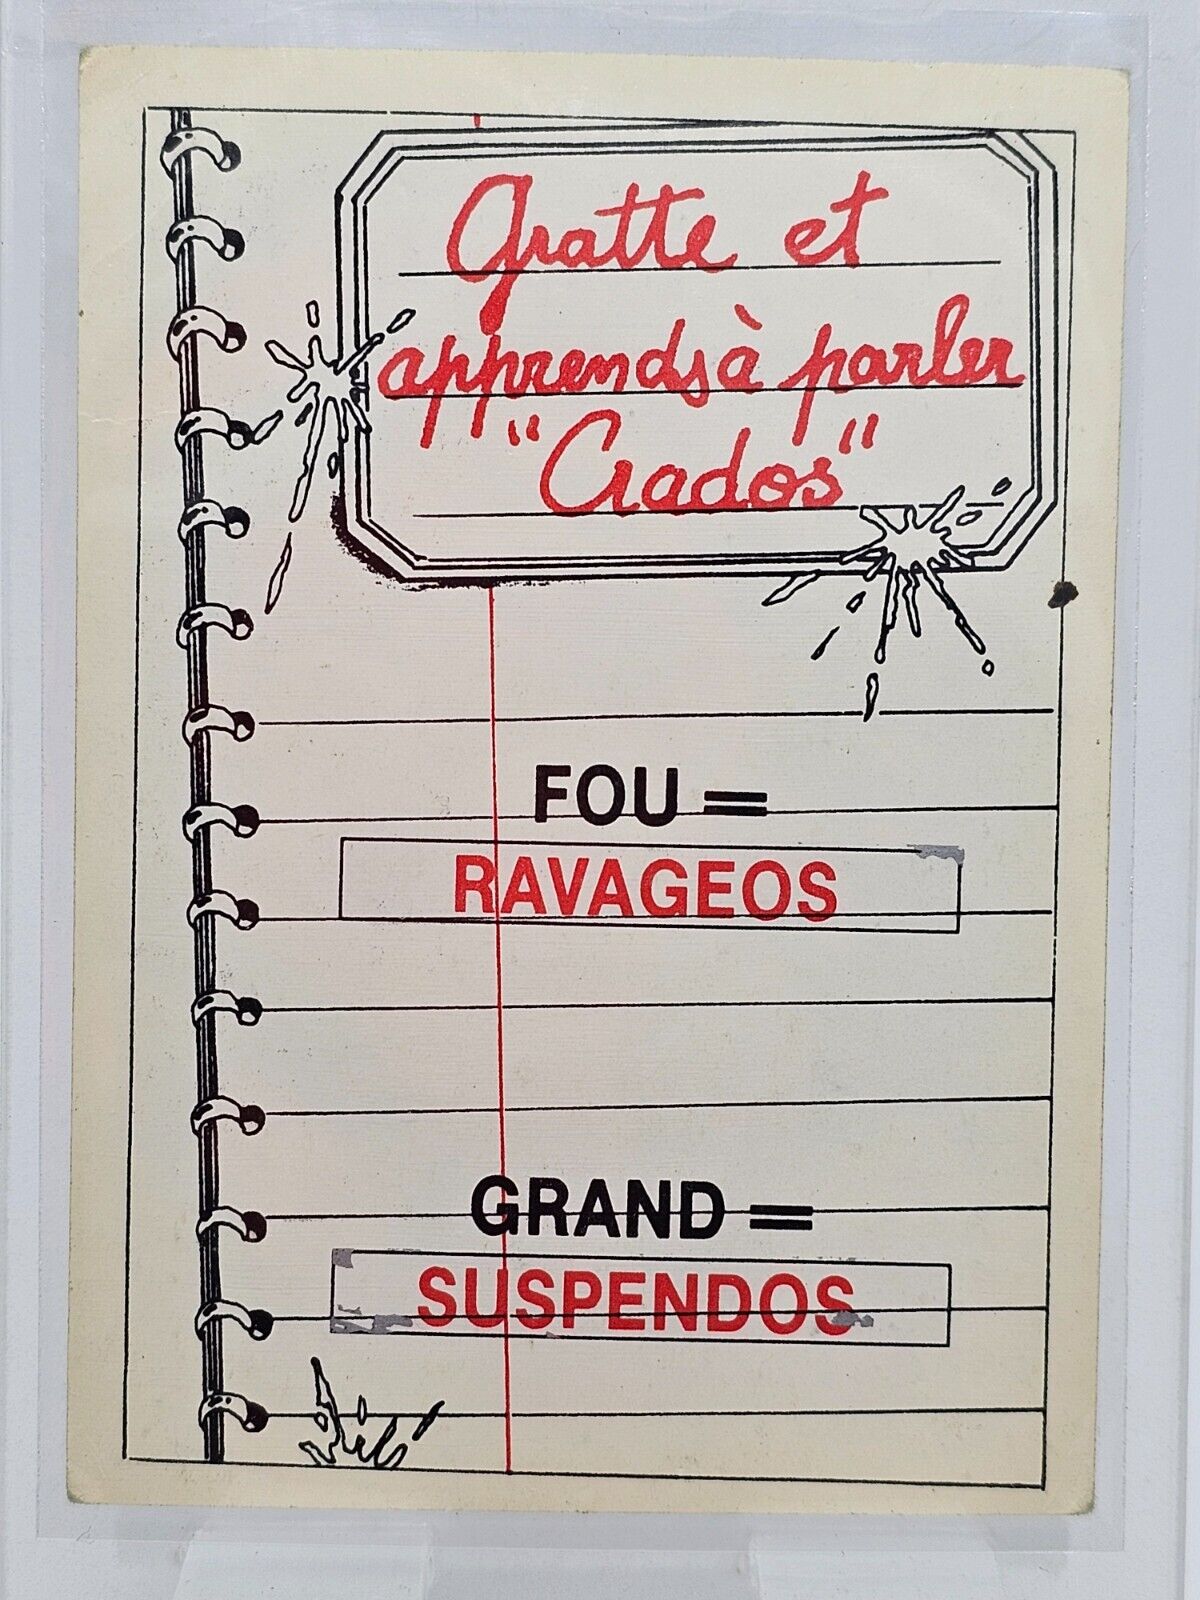 Gratte et
apprends à parler
"Crados"
FOU =
RAVAGEOS
GRAND =
SUSPENDOS